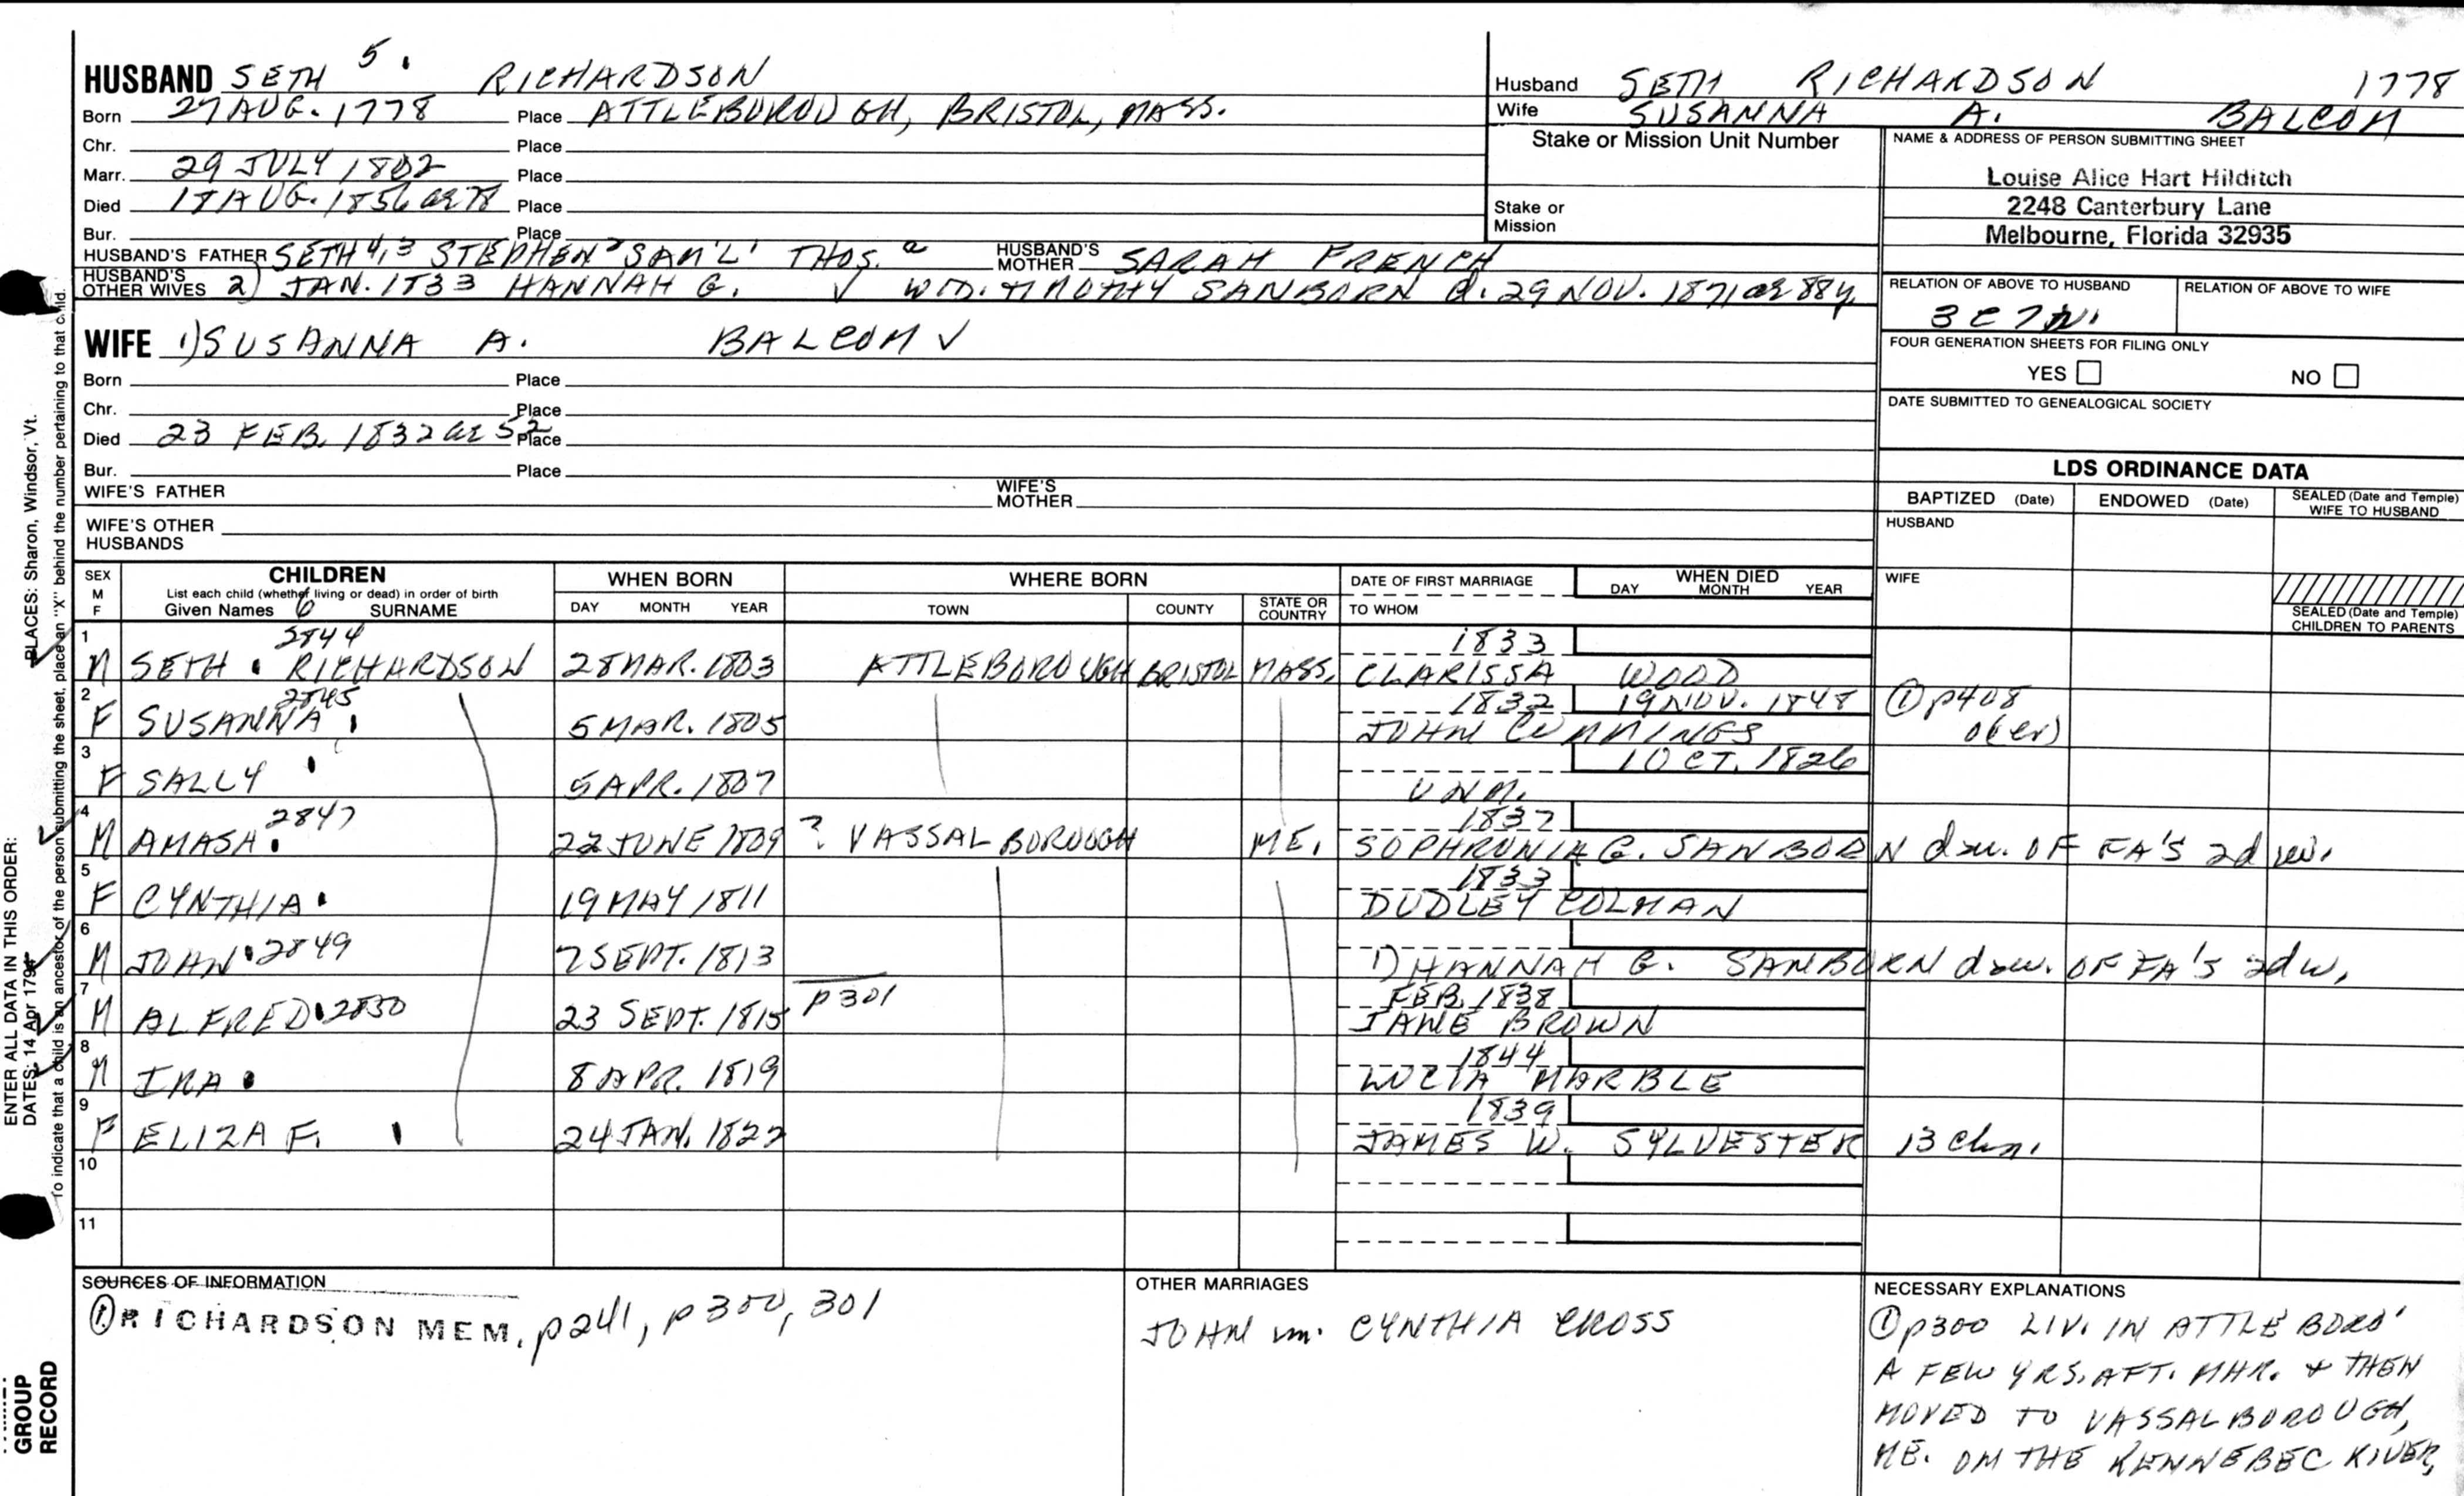 HUSBAND SETH 5. RICHARDSON
Born 27 AUG. 1778 Place ATTLEBOROUGH, BRISTOL, MASS.
Chr. Place
Marr. 29 JULY 1802 Place
Died 18 AUG. 1856 ae 78 Place
Bur. Place
HUSBAND'S FATHER SETH 4,3 STEPHEN 2 SAM'L 1 THOS. a HUSBAND'S MOTHER SARAH FRENCH
HUSBAND'S OTHER WIVES 2) JAN. 1833 HANNAH G. √ WID. TIMOTHY SANBORN d. 29 NOV. 1871 ae 88 y.
WIFE 1) SUSANNA A. BALCOM √
Born Place
Chr. Place
Died 23 FEB. 1832 ae 52 Place
Bur. Place
WIFE'S FATHER WIFE'S MOTHER
WIFE'S OTHER HUSBANDS
Husband SETH RICHARDSON 1778
Wife SUSANNA A. BALCOM
Stake or Mission Unit Number
Stake or Mission
NAME & ADDRESS OF PERSON SUBMITTING SHEET
Louise Alice Hart Hilditch
2248 Canterbury Lane
Melbourne, Florida 32935
RELATION OF ABOVE TO HUSBAND RELATION OF ABOVE TO WIFE
3 C 7 r.
FOUR GENERATION SHEETS FOR FILING ONLY
YES NO
DATE SUBMITTED TO GENEALOGICAL SOCIETY
LDS ORDINANCE DATA
BAPTIZED (Date) ENDOWED (Date) SEALED (Date and Temple) WIFE TO HUSBAND
HUSBAND
WIFE
SEALED (Date and Temple) CHILDREN TO PARENTS
SEX M F
CHILDREN
List each child (whether living or dead) in order of birth
Given Names 6 SURNAME
WHEN BORN
DAY MONTH YEAR
WHERE BORN
TOWN COUNTY STATE OR COUNTRY
DATE OF FIRST MARRIAGE
TO WHOM
WHEN DIED
DAY MONTH YEAR
1 2844 1833
M SETH RICHARDSON 28 MAR. 1803 ATTLEBOROUGH BRISTOL MASS. CLARISSA WOOD
2 2845 1832 19 NOV. 1848 ① p408
F SUSANNA 5 MAR. 1805 JOHN CUMMINGS
3 1 OCT. 1826
F SALLY 5 APR. 1807 UNM.
4 2847 1837
M AMASA 22 JUNE 1809 ? VASSALBOROUGH ME. SOPHRONIA G. SANBORN dau. OF FA'S 2d wi.
5 1833
F CYNTHIA 19 MAY 1811 DUDLEY COLMAN
6
M JOHN 2849 7 SEPT. 1813 1) HANNAH G. SANBORN dau. OF FA'S 2d w.
7 p301 FEB. 1838
M ALFRED 2850 23 SEPT. 1815 JANE BROWN
8 1844
M IRA 8 APR. 1819 LUCIA MARBLE
9 1839
F ELIZA F. 24 JAN. 1822 JAMES W. SYLVESTER 13 chn.
10
11
SOURCES OF INFORMATION
① RICHARDSON MEM. p241, p300, 301
OTHER MARRIAGES
JOHN m. CYNTHIA CROSS
NECESSARY EXPLANATIONS
① p300 LIV. IN ATTLEBORO'
A FEW YRS. AFT. MAR. & THEN
MOVED TO VASSALBOROUGH,
ME. ON THE KENNEBEC RIVER,
ENTER ALL DATA IN THIS ORDER:
DATES: 14 Apr 1794 PLACES: Sharon, Windsor, Vt.
To indicate that a child is an ancestor of the person submitting the sheet, place an "X" behind the number pertaining to that child.
GROUP
RECORD